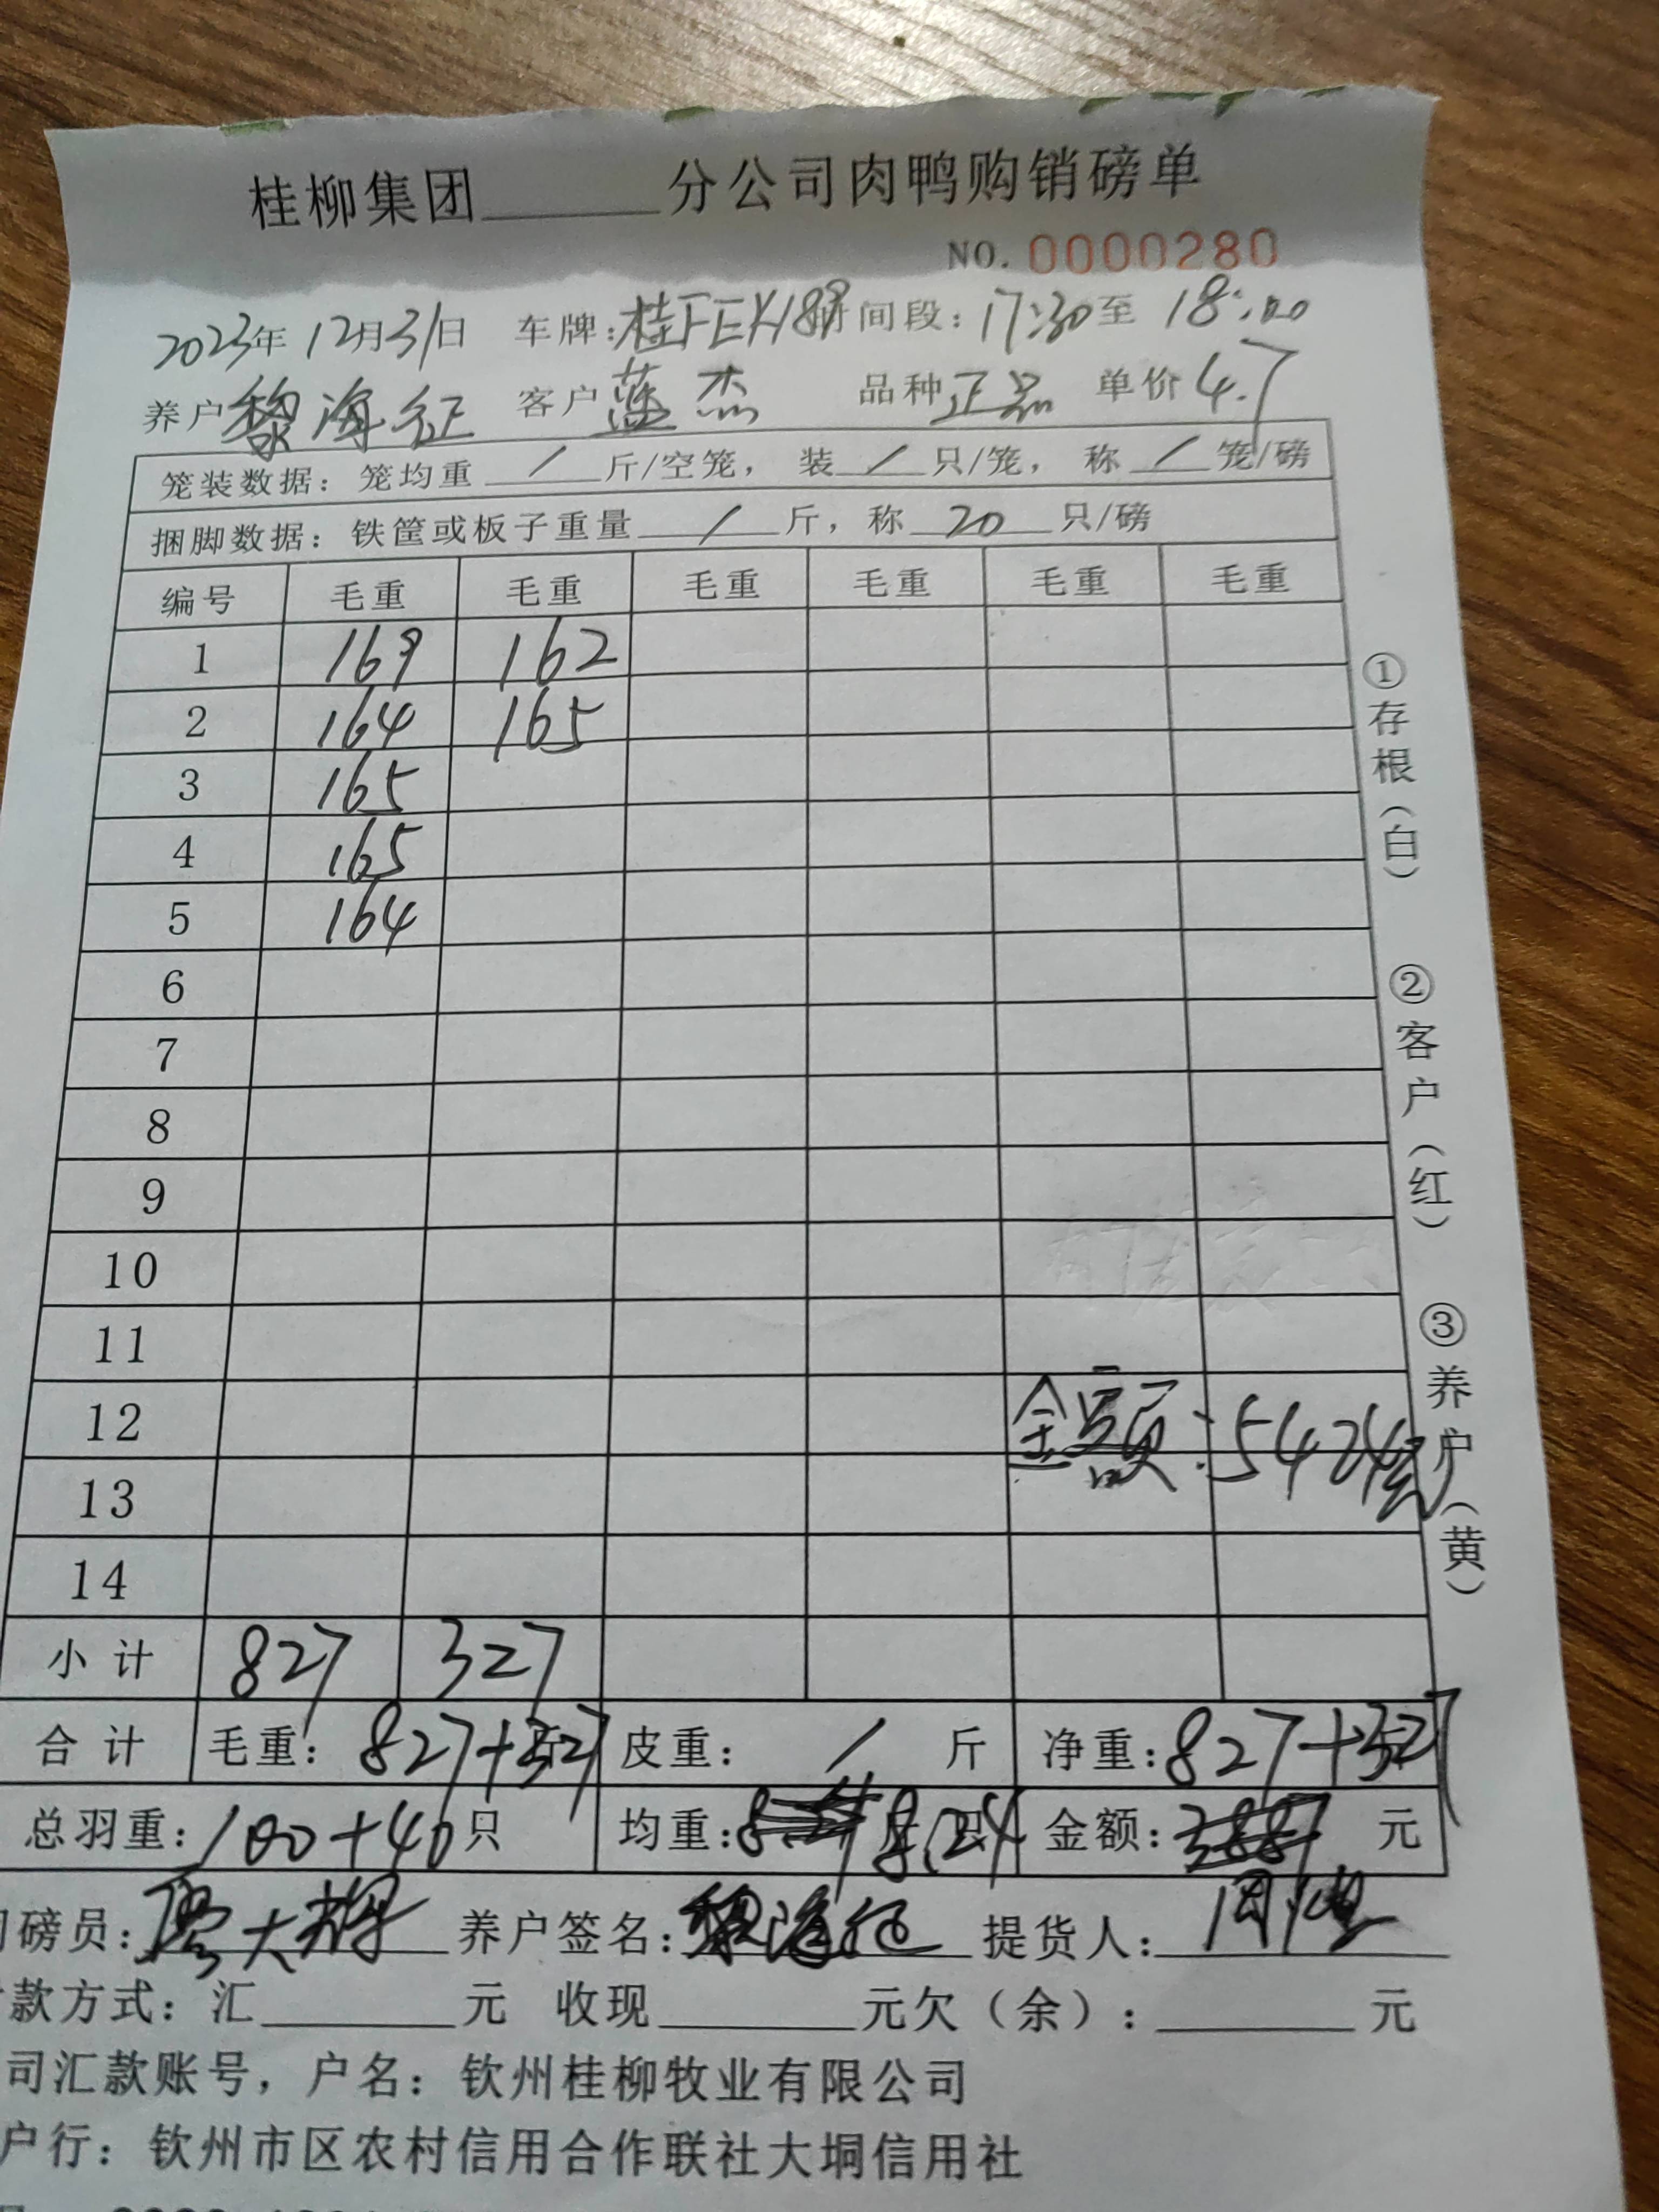 桂柳集团______分公司肉鸭购销磅单
NO. 0000280
2023年 12月31日 车牌:桂FEK189 时间段:17:30至 18:00
养户黎海征 客户蓝杰 品种正品 单价4.7
笼装数据:笼均重 / 斤/空笼,装 / 只/笼,称 / 笼/磅
捆脚数据:铁筐或板子重量 / 斤,称 20 只/磅
编号 毛重 毛重 毛重 毛重 毛重 毛重
1 169 162
2 164 165
3 165
4 165
5 164
6
7
8
9
10
11
12 金额:5424元
13
14
小计 827 327
合计 毛重:827+327斤 皮重: / 斤 净重:827+327
总羽重:100+40只 均重:8.24 金额:3887元
磅员:大辉 养户签名:黎海征 提货人:
款方式:汇______元 收现______元欠(余):______元
司汇款账号,户名:钦州桂柳牧业有限公司
户行:钦州市区农村信用合作联社大垌信用社
①存根(白) ②客户(红) ③养户(黄)